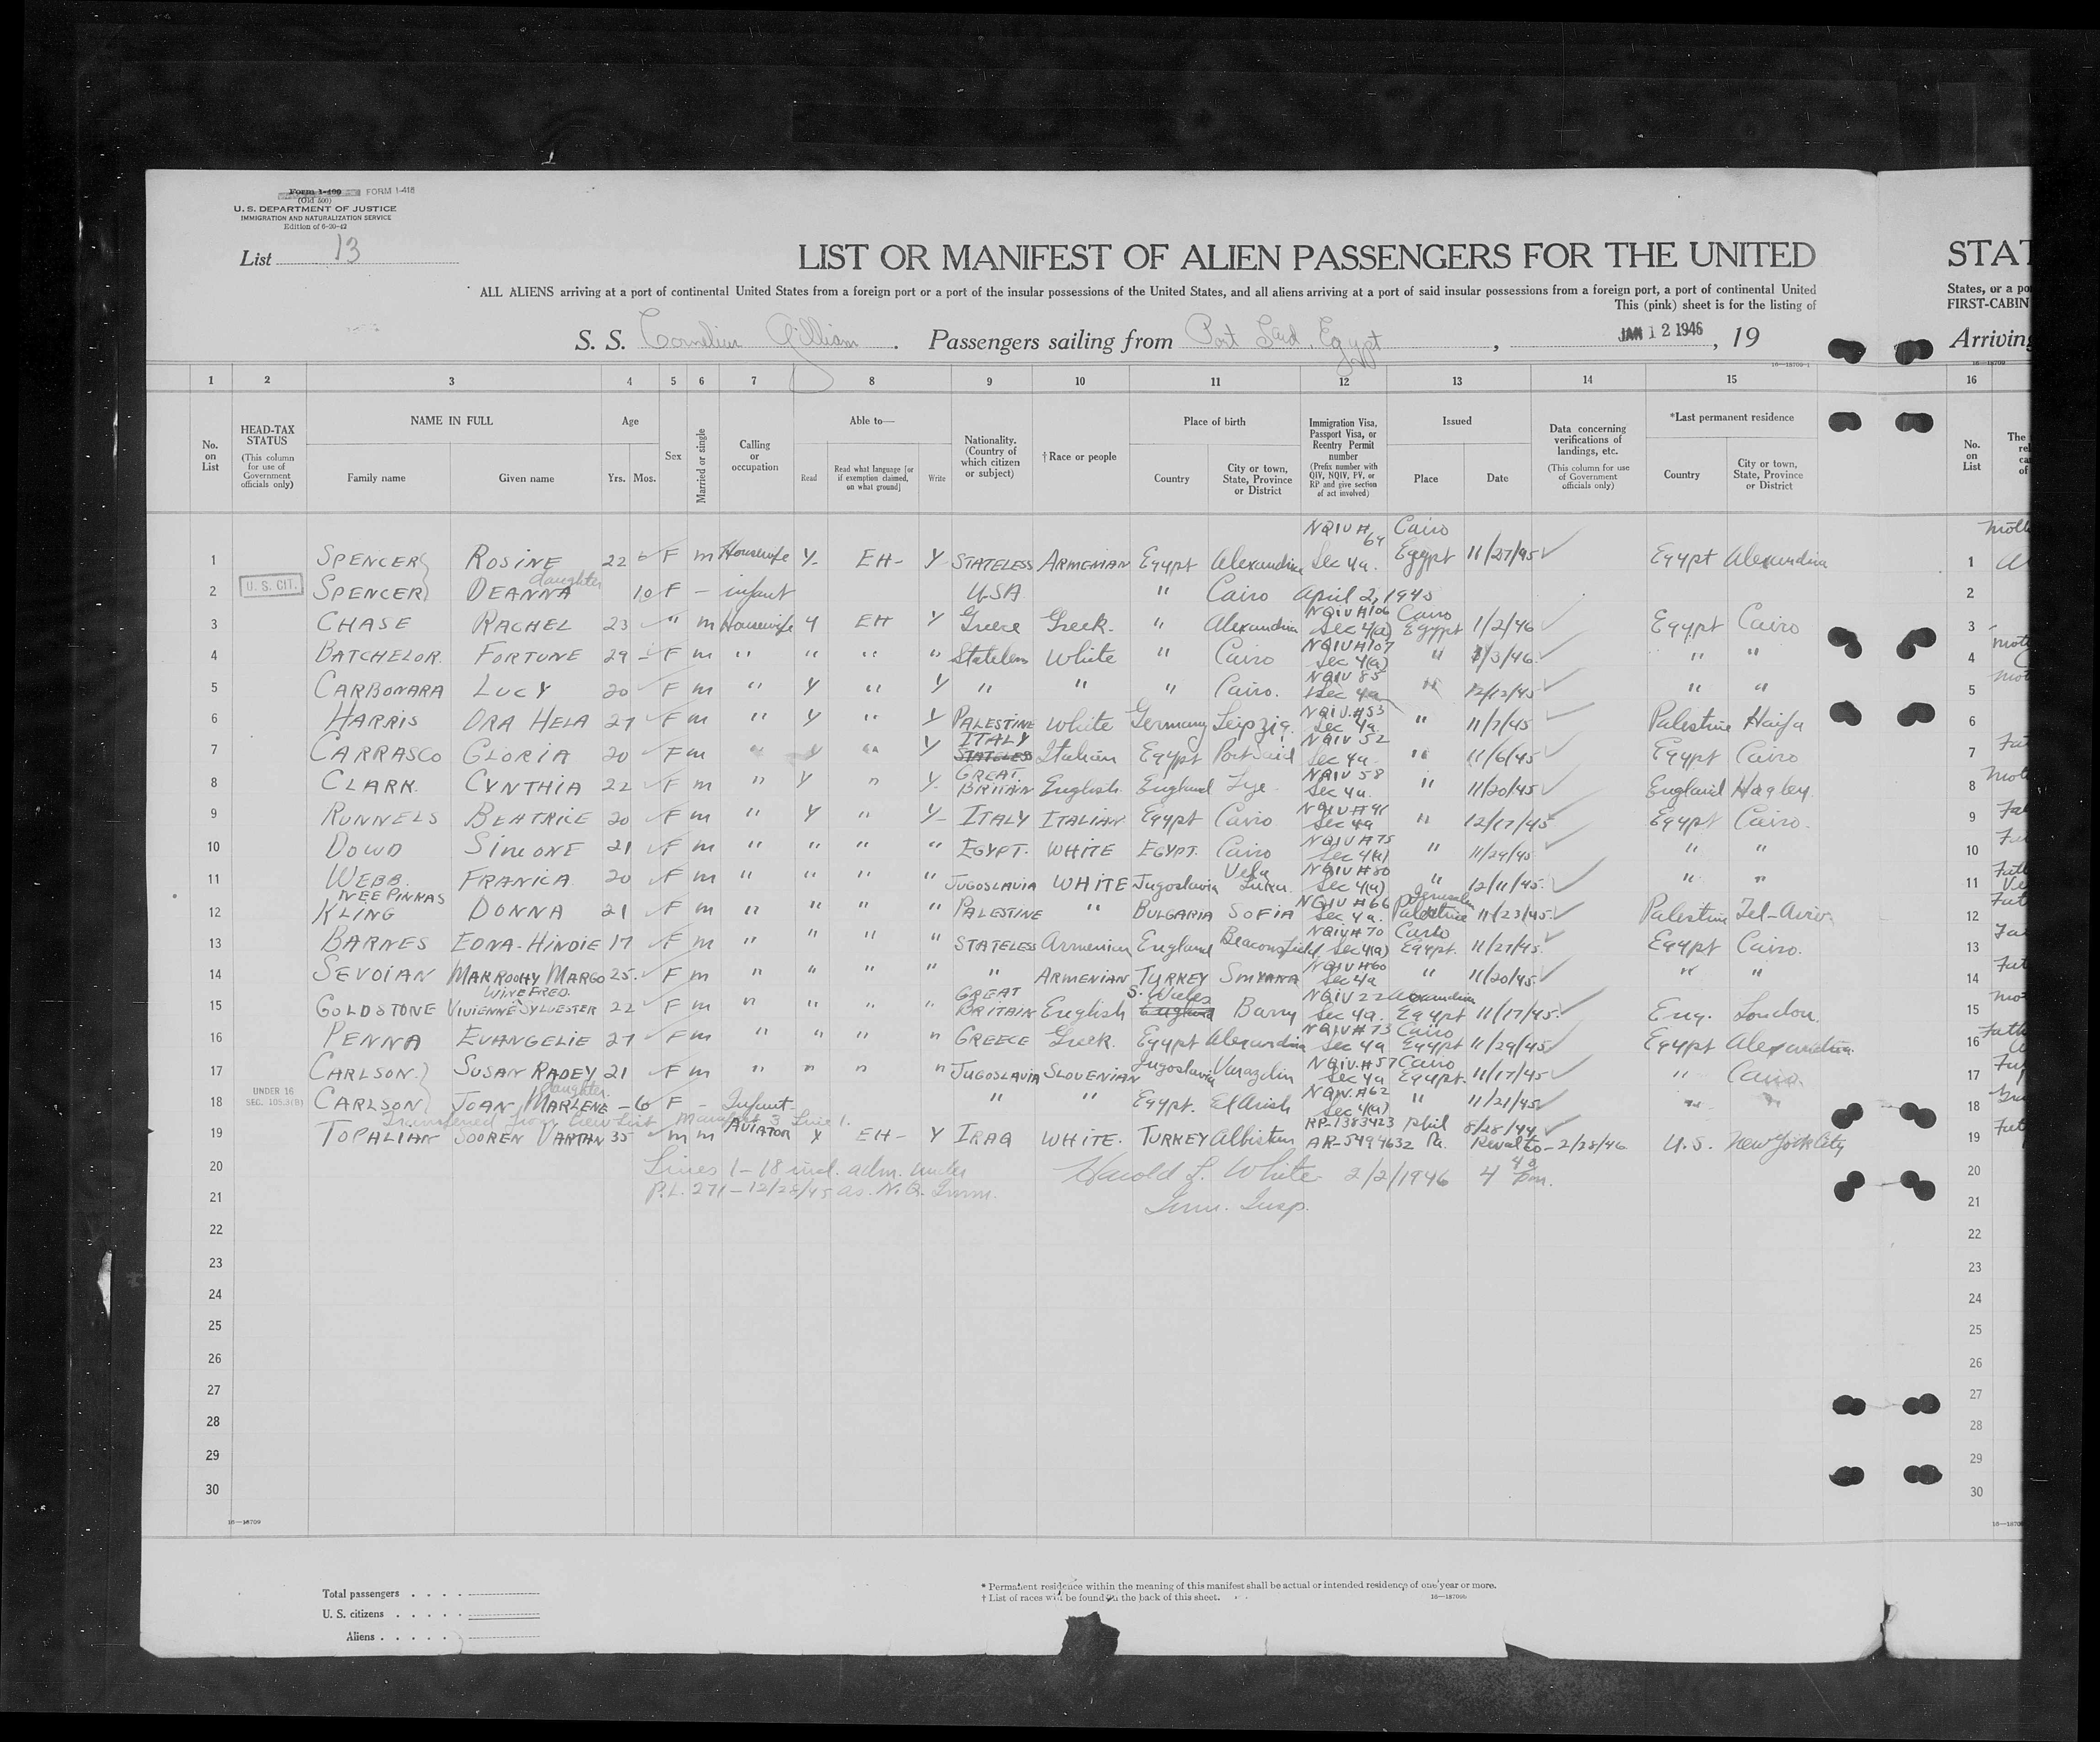 Form I-400 FORM I-416
(Old 500)
U. S. DEPARTMENT OF JUSTICE
IMMIGRATION AND NATURALIZATION SERVICE
Edition of 6-20-42
List 13
LIST OR MANIFEST OF ALIEN PASSENGERS FOR THE UNITED STAT
ALL ALIENS arriving at a port of continental United States from a foreign port or a port of the insular possessions of the United States, and all aliens arriving at a port of said insular possessions from a foreign port, a port of continental United States, or a po
This (pink) sheet is for the listing of FIRST-CABIN
S. S. Cornelius Gilliam . Passengers sailing from Port Said, Egypt , JAN 12 1946 , 19 Arriving
1 2 3 4 5 6 7 8 9 10 11 12 13 14 15 16
No. on List
HEAD-TAX STATUS (This column for use of Government officials only)
NAME IN FULL Family name Given name
Age Yrs. Mos.
Sex
Married or single
Calling or occupation
Able to— Read Read what language [or if exemption claimed, on what ground] Write
Nationality. (Country of which citizen or subject)
†Race or people
Place of birth Country City or town, State, Province or District
Immigration Visa, Passport Visa, or Reentry Permit number (Prefix number with QIV, NQIV, PV, or RP and give section of act involved)
Issued Place Date
Data concerning verifications of landings, etc. (This column for use of Government officials only)
*Last permanent residence Country City or town, State, Province or District
No. on List
1 SPENCER ROSINE 22 F m Housewife Y EH- Y STATELESS ARMENIAN Egypt Alexandria NQIV # 64 Sec 4a. Cairo Egypt 11/27/45 Egypt Alexandria 1
2 U. S. CIT. SPENCER DEANNA daughter 10 F - infant USA " Cairo April 2, 1945 2
3 CHASE RACHEL 23 " m Housewife Y EH Y Greece Greek. " Alexandria NQIV #106 Sec 4(a) Cairo Egypt 1/2/46 Egypt Cairo 3
4 BATCHELOR. FORTUNE 29 F m " " " " Stateless White " Cairo NQIV #107 Sec 4(a) " 1/3/46 " " 4
5 CARBONARA LUCY 20 F m " Y " Y " " " Cairo. NQIV 85 Sec 4a " 12/12/45 " " 5
6 HARRIS ORA HELA 27 F m " Y " Y PALESTINE White Germany Leipzig. NQIV.#53 Sec 4a. " 11/7/45 Palestine Haifa 6
7 CARRASCO GLORIA 20 F m " Y " Y ITALY STATELESS Italian Egypt Port Said NQIV 52 Sec 4a " 11/6/45 Egypt Cairo 7
8 CLARK. CYNTHIA 22 F m " Y " Y. GREAT BRITAIN English. England Lye. NQIV 58 Sec 4a. " 11/20/45 England Hagley. 8
9 RUNNELS BEATRICE 20 F m " Y " Y- ITALY ITALIAN Egypt Cairo NQIV #91 Sec 4a " 12/17/45 Egypt Cairo. 9
10 DOWD SIMONE 21 F m " " " " EGYPT. WHITE EGYPT. Cairo NQIV #75 Sec 4(a) " 11/29/45 " " 10
11 WEBB. FRANICA 20 F m " " " " JUGOSLAVIA WHITE Jugoslavia Vela Luka. NQIV #80 Sec 4(a) " 12/11/45. " " 11
12 NEE PINHAS KLING DONNA 21 F m " " " " PALESTINE " BULGARIA SOFIA NQIV #66 Sec 4a. Jerusalem Palestine 11/23/45. Palestine Tel-Aviv. 12
13 BARNES EDNA-HINDIE 17 F m " " " " STATELESS Armenian England Beaconsfield NQIV# 70 Sec 4(a) Cairo Egypt. 11/27/45. Egypt Cairo. 13
14 SEVOIAN MARROOHY MARGO 25. F m " " " " " ARMENIAN TURKEY SMYRNA NQIV #60 Sec 4a " 11/20/45. " " 14
15 GOLDSTONE WINEFRED. VIVIENNE SYLVESTER 22 F m " " " " GREAT BRITAIN English S. Wales England Barry NQIV 22 Sec 4a. Alexandria Egypt 11/17/45. Eng. London. 15
16 PENNA EVANGELIE 27 F m " " " " GREECE Greek. Egypt Alexandria NQIV # 73 Sec 4a Cairo Egypt 11/29/45 Egypt Alexandria. 16
17 CARLSON. SUSAN RADEY 21 F m " " " " JUGOSLAVIA SLOVENIAN Jugoslavia Varazdin NQIV.#57 Sec 4a Cairo Egypt. 11/17/45 " Cairo. 17
18 UNDER 16 SEC. 105.3(B) CARLSON JOAN MARLENE daughter -6 F - Infant- " " Egypt. El Arish NQIV.#62 Sec 4(a) " 11/21/45 " " 18
Transferred from Crew List Manifest 3 Line 1.
19 TOPALIAN SOOREN VARTAN 35 m m AVIATOR Y EH- Y IRAQ WHITE. TURKEY Albistan RP-1383423 AR-5494632 Phil Pa. 8/28/44 Reval to- 2/28/46. U.S. New York City 19
20 Lines 1-18 incl. adm. under Harold L. White 2/2/1946 4 40 pm. 20
21 P.L. 271-12/28/45 as. N.Q. Imm. Imm. Insp. 21
22 22
23 23
24 24
25 25
26 26
27 27
28 28
29 29
30 30
16—18709
Total passengers
U. S. citizens
Aliens
* Permanent residence within the meaning of this manifest shall be actual or intended residence of one year or more.
† List of races will be found on the back of this sheet.